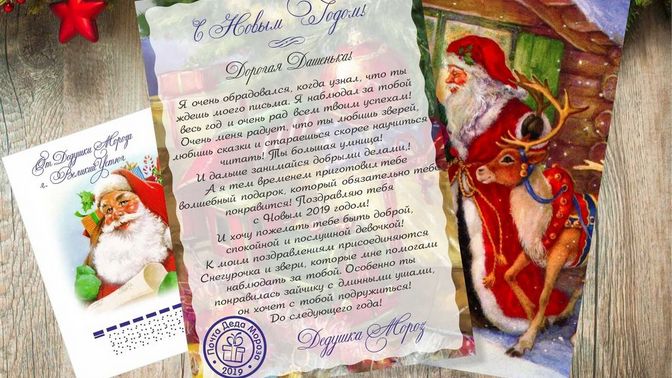 С Новым Годом!
Дорогая Дашенька!
Я очень обрадовался, когда узнал, что ты
ждешь моего письма. Я наблюдал за тобой
весь год и очень рад всем твоим успехам!
Очень меня радует, что ты любишь зверей,
любишь сказки и стараешься скорее научиться
читать! Ты большая умница!
И дальше занимайся добрыми делами!
А я тем временем приготовил тебе
волшебный подарок, который обязательно тебе
понравится! Поздравляю тебя
с Новым 2019 годом!
И хочу пожелать тебе быть доброй,
спокойной и послушной девочкой!
К моим поздравлениям присоединяются
Снегурочка и звери, которые мне помогали
наблюдать за тобой. Особенно ты
понравилась зайчику с длинными ушами,
он хочет с тобой подружиться!
До следующего года!
Дедушка Мороз
Почта Деда Мороза
2019
От Дедушки Мороза
г. Великий Устюг